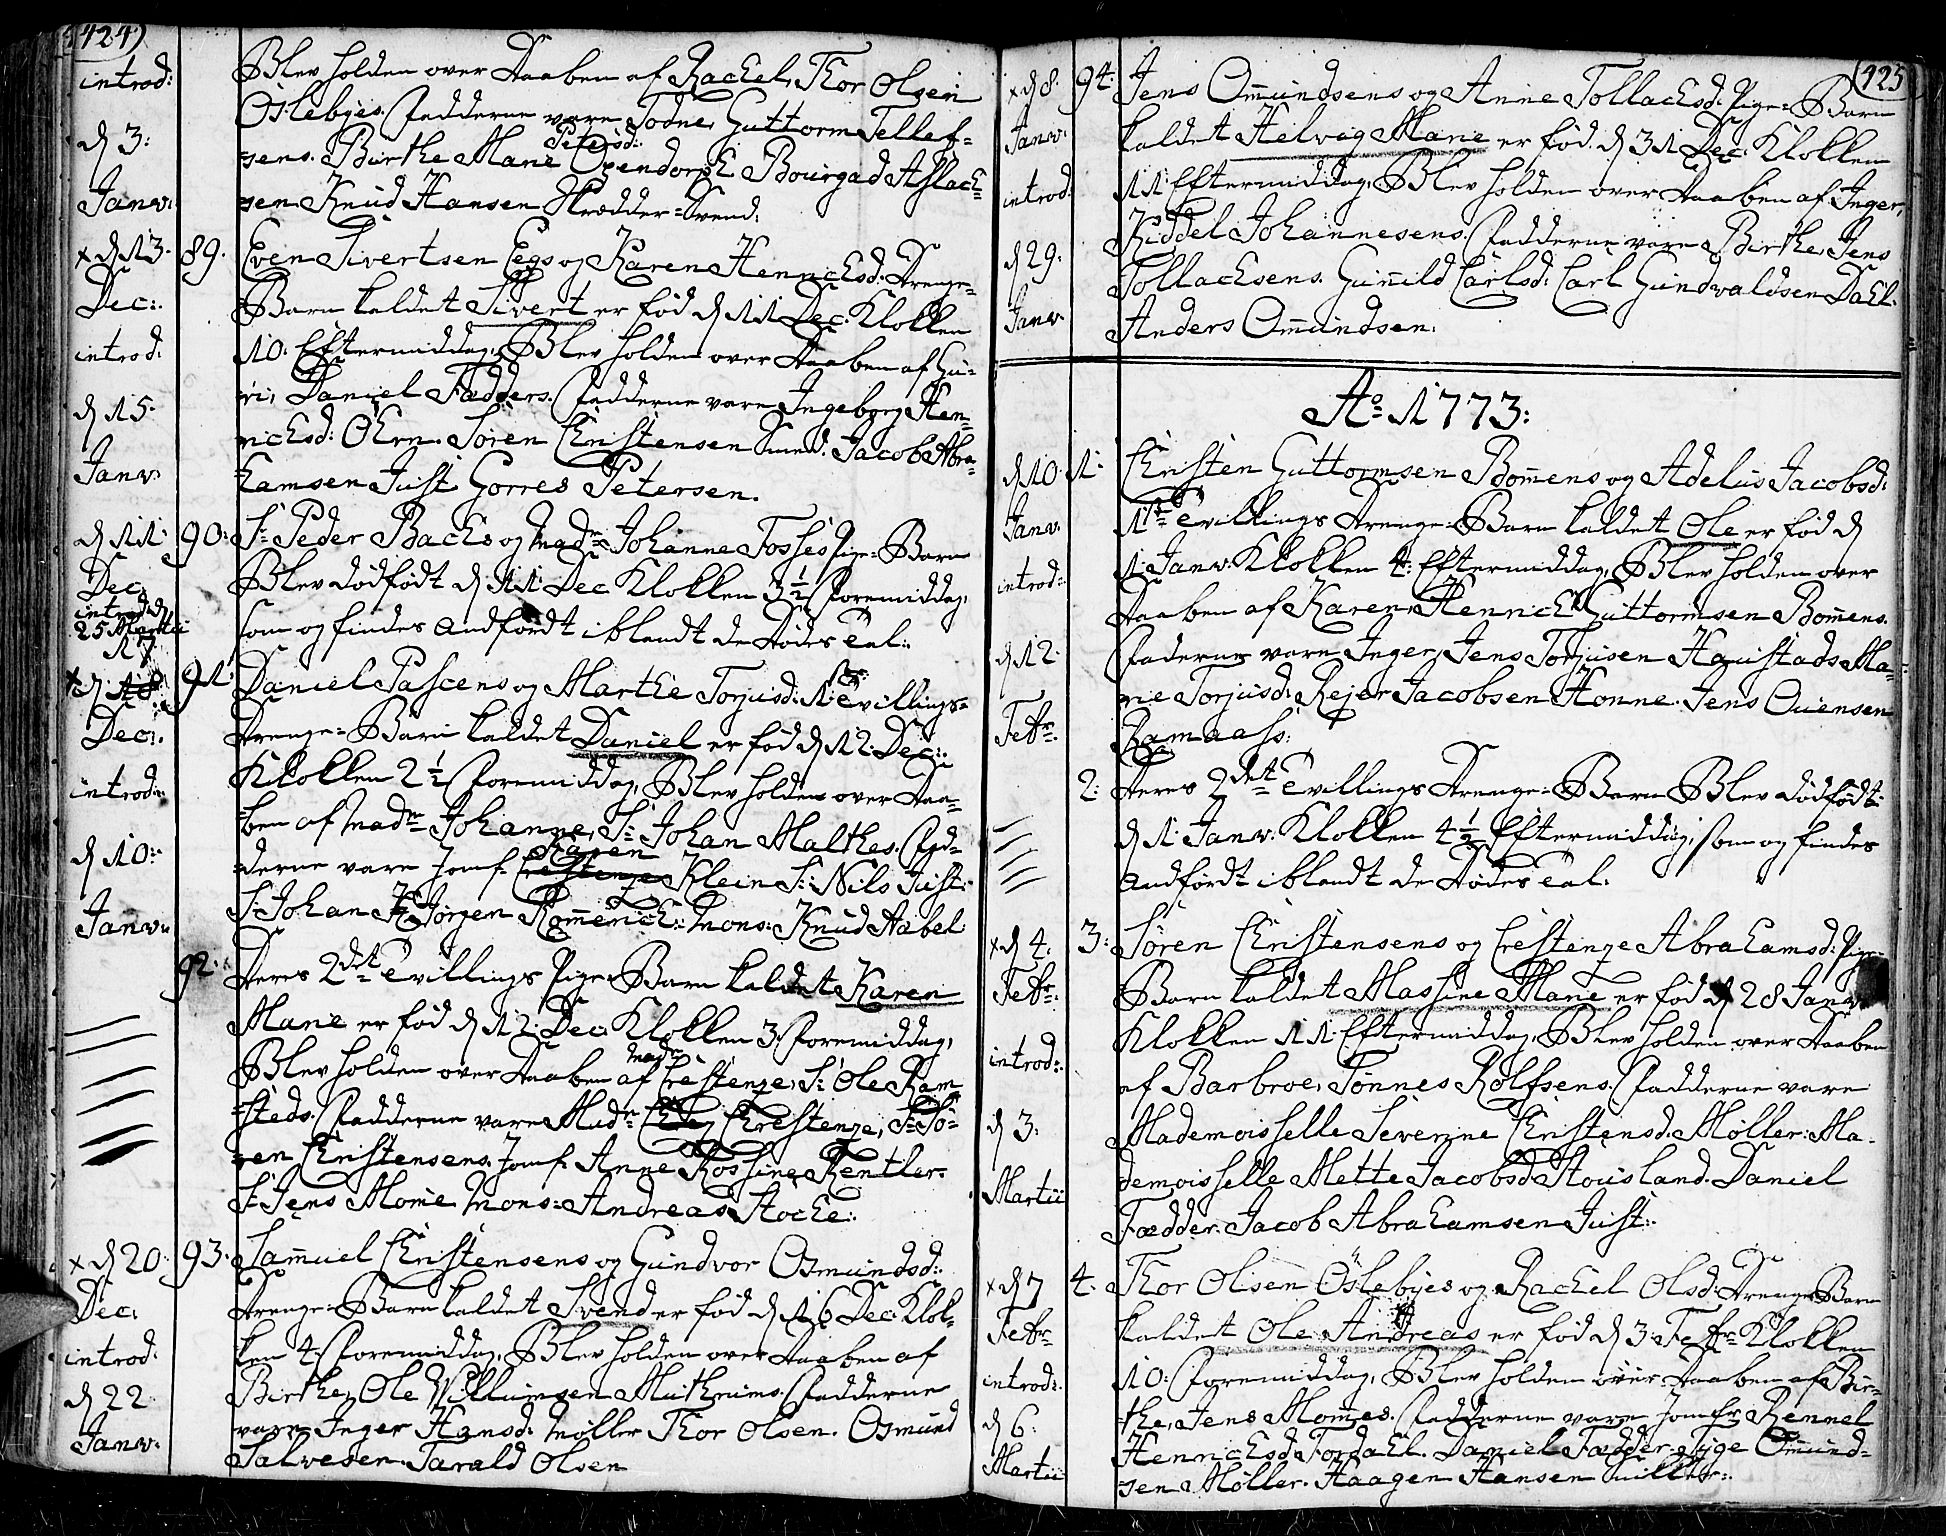 424)
introd:
d 3:
Janv:
Blev holden over Daaben af Rachel, Thor Olsen
Oslebyes. Fadderne vare Todne, Guttorm Tellef-
sens. Birthe Marie Petersd: Oxendorph Bourgad Aslach-
sen. Knud Hansen Skrædder-Svend.
x d 13. 89.
Dec:
introd:
d 15.
Janv:
Even Sivertsen Eegs og Karen Henrichsd: Drenge-
Barn kaldet Sivert er fød d 11 Dec. Klokken
10. Eftermiddag, Blev holden over Daaben af Gu-
ri, Daniel Fædders. Fadderne vare Ingeborg Hen-
richsd: Oern. Søren Christensen Smed. Jacob Abra-
hamsen Just. Gorres Petersen.
d 11. 90:
Dec.
introd: d
25 Martii
Sr: Peder Bachs og Madm Johanne Fosses Pige-Barn
Blev dødfødt d 11. Dec Klokken 3 1/2 Formiddag,
som og findes Andført iblandt de Dødes Tal:
17
x d 18. 91.
Dec:
introd:
d 10:
Janv:
Daniel Pascens og Marthe Torjusd: 1ste Tvillings-
Drenge-Barn kaldet Daniel er fød d 12. Dec:
Klokken 2 1/2 Formiddag, Blev holden over Daa-
ben af Madm Johanne, Sr: Johan Malthes. Fad-
derne vare Jomf. Karen Klein Sr: Nils Just:
Sr: Johan Jørgen Rømerich: Mons: Knud Aabel.
92:
Deres 2det Tvillings Pige-Barn kaldet Karen
Marie er fød d 12. Dec. Klokken 3. Formiddag,
Blev holden over Daaben af Madm Crestenze, Sr: Ole Ram
steds. Fadderne vare Madm Crestenze, Sr: Sø-
ren Christensens. Jomf. Anne Rossine Rentler.
Sr: Jens Mome Mons: Andreas Stoche:
x d 20. 93.
Dec:
introd:
d 22
Janv:
Samuel Christensens og Gundvor Osmundsd:
Drenge-Barn kaldet Svend er fød d 16 Dec: Klok-
ken 4. Formiddag, Blev holden over Daaben af
Birthe, Ole Willumsen Fadderne
vare Inger Hansd: Møller Thor Olsen. Osmund
Salvesen. Tarald Olsen
425
x d 8. 94.
Janv:
introd:
d 29.
Janv.
Jens Omundsens og Anne Tollachsd: Pige-Barn
kaldet Helvig Marie er fød d 31 Dec: Klokken
11 Eftermiddag, Blev holden over Daaben af Inger,
Kiddel Johannesens. Fadderne vare Birthe, Jens
Tollachsens. Gunild Carlsd: Carl Gundvaldsen Dahl.
Anders Omundsen.
Ao 1773:
d 10. 1.
Janv.
introd:
d 12.
Febr:
Christen Guttormsen Bomens og Adelus Jacobsd:
1ste Tvillings Drenge-Barn kaldet Ole er fød d
1. Janv: Klokken 4. Eftermiddag, Blev holden over
Daaben af Karen, Henrich Guttormsen Bomens.
Faderne vare Inger, Jens Torjusen Haustads Ma-
rie Torjusd: Rejer Jacobsen Honne. Jens Ouensen
Ramaass:
2. Deres 2det Tvillings Drenge-Barn Blev dødfødt
d 1. Janv: Klokken 4 1/2 Eftermiddag, som og findes
Andført iblandt de Dødes Tal:
x d 4: 3:
Febr:
introd:
d 3:
Martii
Søren Christensens og Crestenze Abrahamsd: Pige-
Barn kaldet Massine Marie er fød d 28 Janv:
Klokken 11. Eftermiddag, Blev holden over Daaben
af Barbroe, Tønnes Rolfsens. Fadderne vare
Mademoisselle Severine Christensd: Møller: Ma-
demoisselle Mette Jacobsd Stousland. Daniel
Fædder. Jacob Abrahamsen Just:
x d 7 4.
Febr
introd:
d 6.
Martii
Thor Olsen Oslebyes og Rachel Olsd: Drenge Barn
kaldet Ole Andreas er fød d 3 Febr: Klokken
10: Formiddag, Blev holden over Daaben af Bir-
the, Jens Momes. Fadderne vare Jomfr: Rennel
Henrichsd: Fordahl. Daniel Fædder. Tyge Omund-
sen Møller. Haagen Hansen Møller: